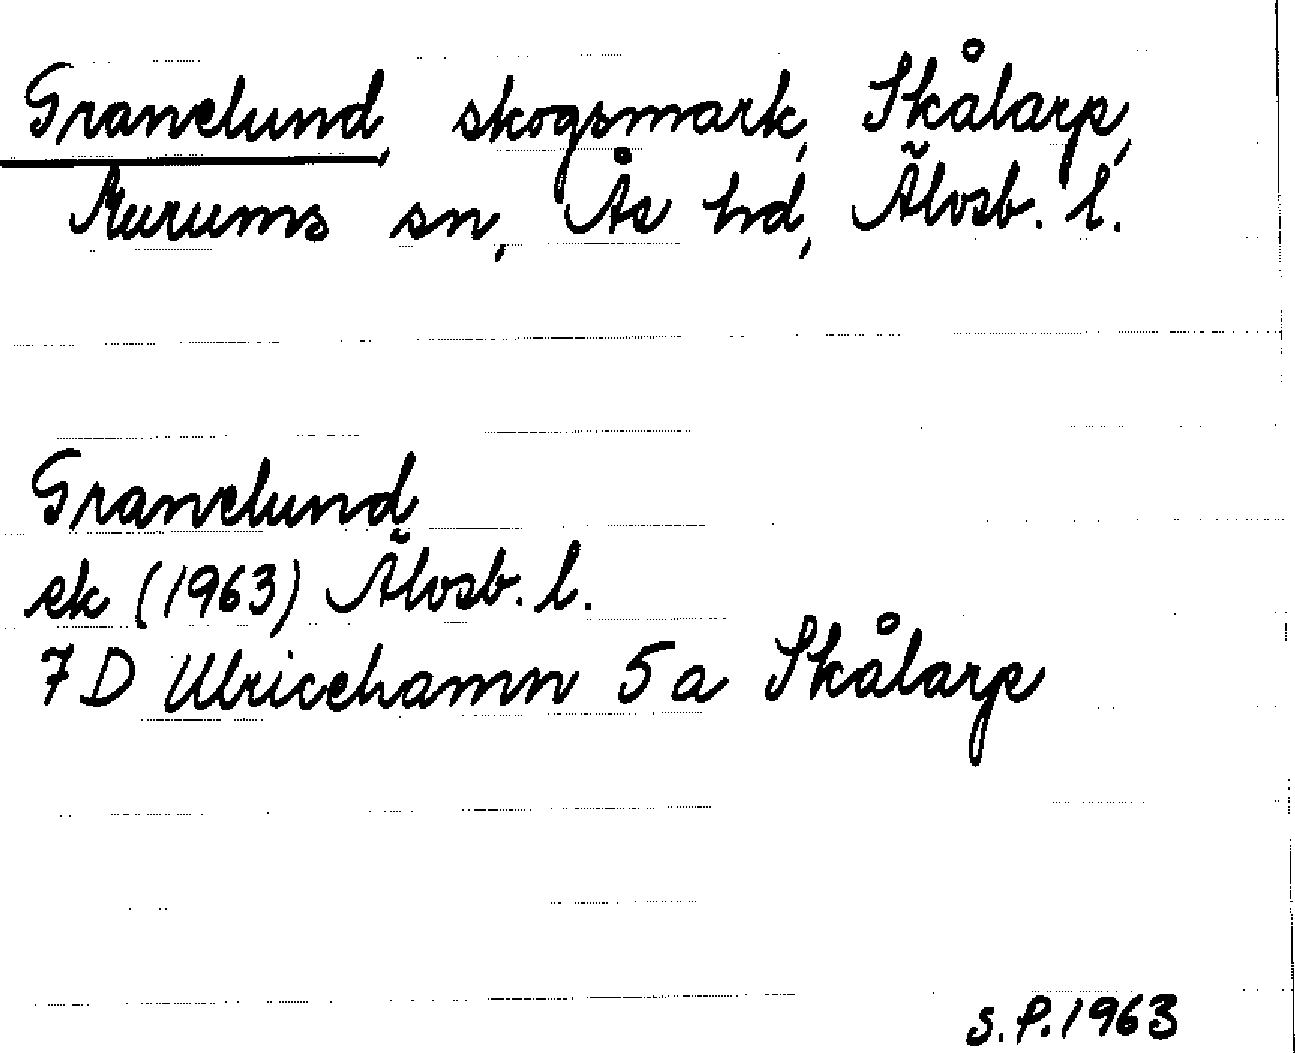 Granelund, skogsmark, Skålarp,
Murums sn, Ås hd, Älvsb. l.
Granelund
ek (1963) Älvsb. l.
7 D Ulricehamn 5 a Skålarp
S.P. 1963